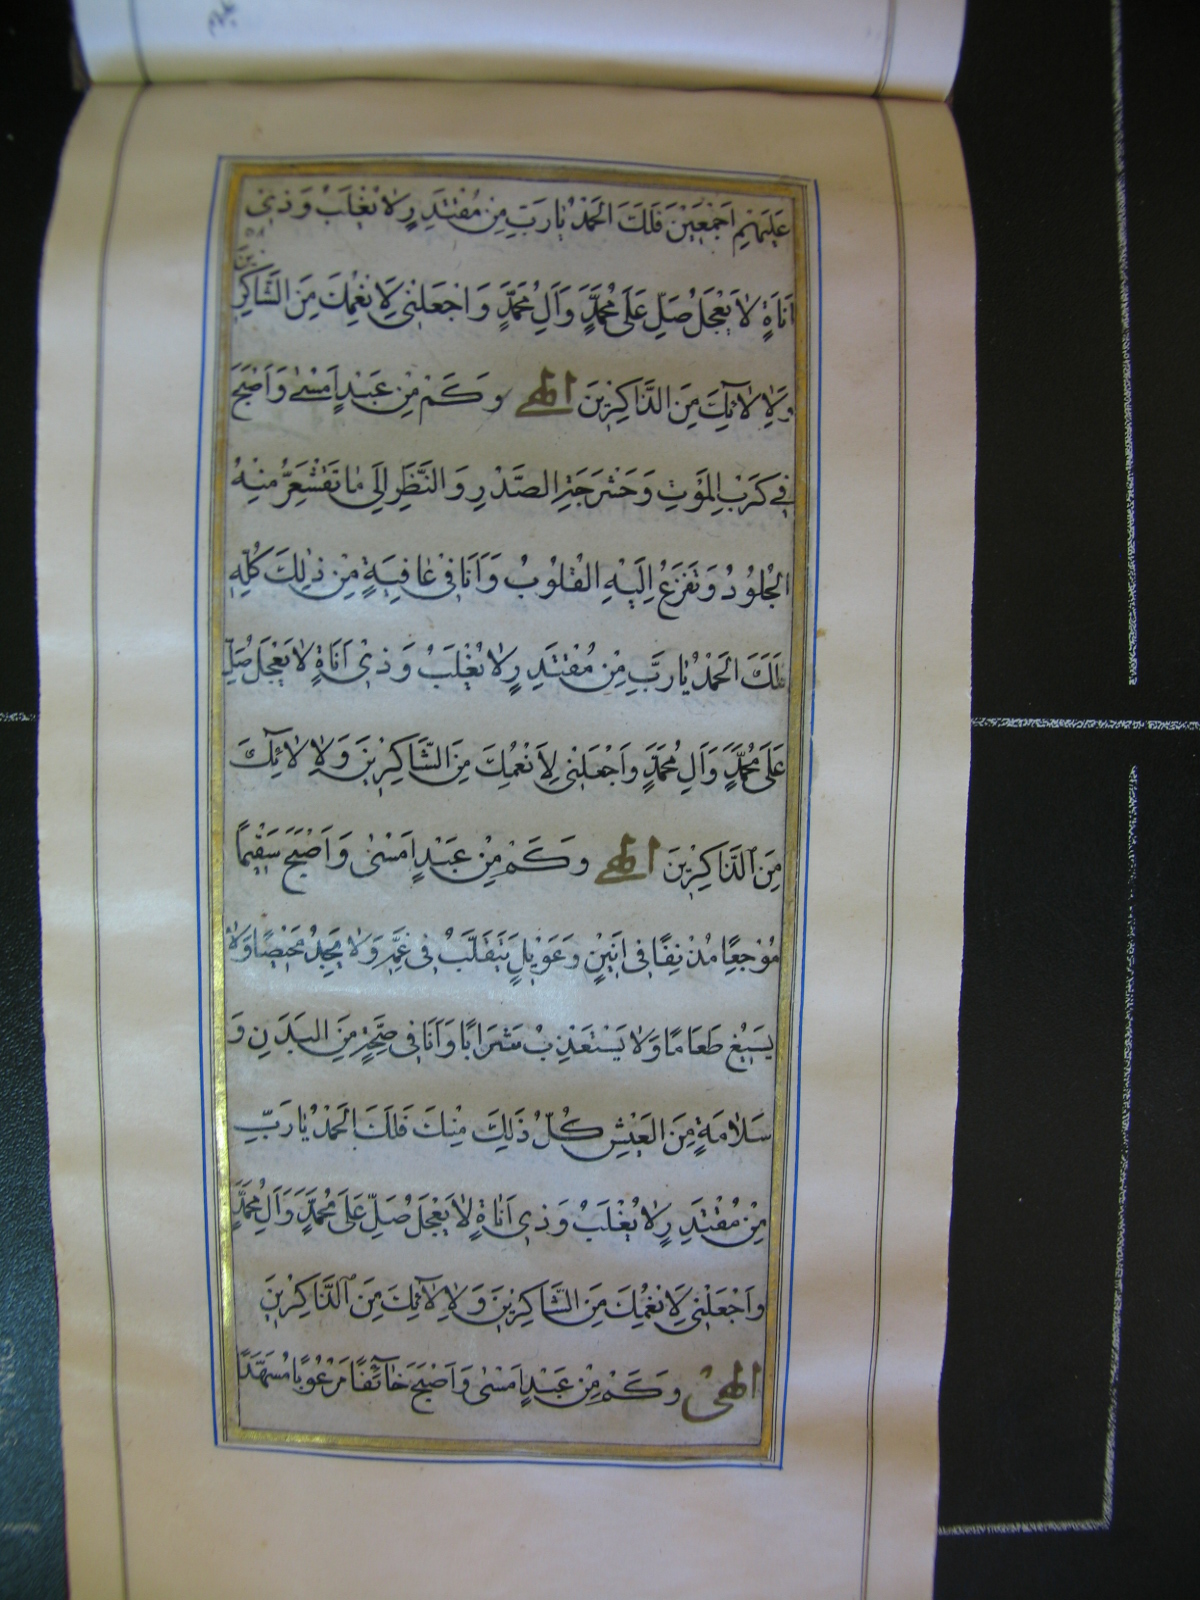 عَلَيْهِمْ اَجْمَعِيْنَ فَلَكَ الْحَمْدُ يٰا رَبِّ مِنْ مُقْتَدِرٍ لاٰ يُغْلَبُ وَ ذِيْ
اَنَاةٍ لاٰ يَعْجَلُ صَلِّ عَلىٰ مُحَمَّدٍ وَآلِ مُحَمَّدٍ وَاجْعَلْنِيْ لِاَنْعُمِكَ مِنَ الشَّاكِرِيْنَ
وَلِاٰلاٰئِكَ مِنَ الذَّاكِرِيْنَ الهي وَ كَمْ مِنْ عَبْدٍ اَمْسٰى وَ اَصْبَحَ
فِي كَرْبِ الْمَوْتِ وَ حَشْرَجَةِ الصَّدْرِ وَ النَّظَرِ اِلىٰ مٰا تَقْشَعِرُّ مِنْهُ
الْجُلُوْدُ وَ تَفْزَعُ اِلَيْهِ الْقُلُوْبُ وَ اَنَا فِيْ عٰافِيَةٍ مِنْ ذٰلِكَ كُلِّهِ
فَلَكَ الْحَمْدُ يٰا رَبِّ مِنْ مُقْتَدِرٍ لاٰ يُغْلَبُ وَ ذِيْ اَنَاةٍ لاٰ يَعْجَلُ صَلِّ
عَلىٰ مُحَمَّدٍ وَآلِ مُحَمَّدٍ وَاجْعَلْنِيْ لِاَنْعُمِكَ مِنَ الشَّاكِرِيْنَ وَلِاٰلاٰئِكَ
مِنَ الذَّاكِرِيْنَ الهي وَ كَمْ مِنْ عَبْدٍ اَمْسٰى وَ اَصْبَحَ سَقِيْمًا
مُوْجَعًا مُدْنِفًا فِيْ اَنِيْنٍ وَ عَوِيْلٍ يَتَقَلَّبُ فِيْ غَمِّهِ وَلاٰ يَجِدُ مَحِيْصًا وَلاٰ
يَسِيْغُ طَعَامًا وَلاٰ يَسْتَعْذِبُ شَرَابًا وَ اَنَا فِيْ صِحَّةٍ مِنَ الْبَدَنِ وَ
سَلاٰمَةٍ مِنَ الْعَيْشِ كُلُّ ذٰلِكَ مِنْكَ فَلَكَ الْحَمْدُ يٰا رَبِّ
مِنْ مُقْتَدِرٍ لاٰ يُغْلَبُ وَ ذِيْ اَنٰاةٍ لاٰ يَعْجَلُ صَلِّ عَلىٰ مُحَمَّدٍ وَآلِ مُحَمَّدٍ
وَاجْعَلْنِيْ لِاَنْعُمِكَ مِنَ الشَّاكِرِيْنَ وَلِاٰلاٰئِكَ مِنَ الذَّاكِرِيْنَ
الهي وَ كَمْ مِنْ عَبْدٍ اَمْسٰى وَ اَصْبَحَ خٰائِفًا مَرْعُوْبًا مُسَهَّدًا